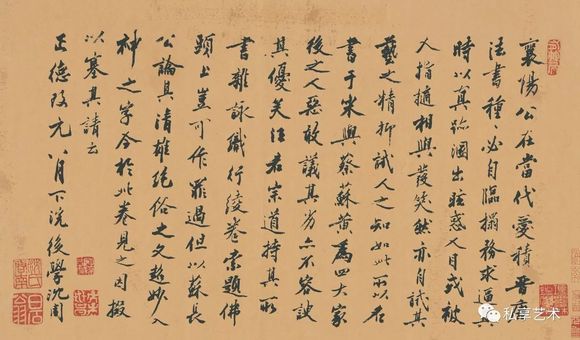 襄陽公在當代愛積晉唐
法書種〻必自臨搨務求逼真
時以真跡溷出眩惑人目或被
人指擿相與發笑然亦自試其
藝之精抑試人之知如此所以名
書于宋與蔡蘇黃為四大家
後之人惡敢議其劣亦不容諛
其優矣汪君宗道持其所
書雜詠織行綾卷索題佛
頭上豈可作罪過但以蘇長
公論其清雄絕俗之文超妙入
神之字今於此卷見之因掇
以塞其請云
正德改元八月下浣後學沈周
私享艺术